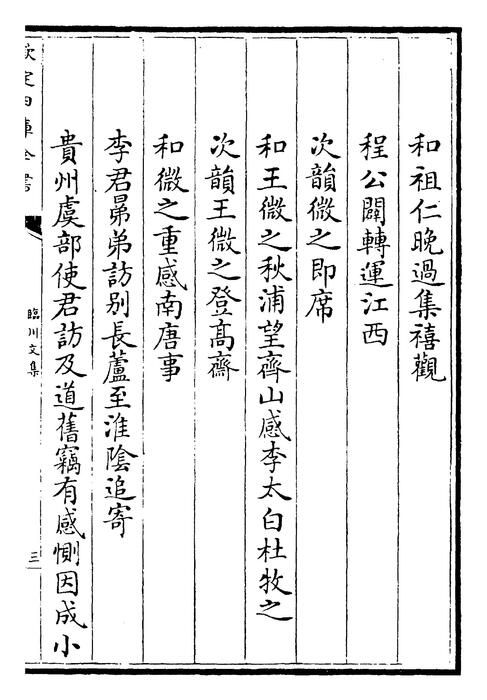 和祖仁晚過集禧觀
程公闢轉運江西
次韻微之即席
和王微之秋浦望齊山感李太白杜牧之
次韻王微之登髙齋
和微之重感南唐事
李君㬇弟訪别長蘆至淮陰追寄
貴州虞部使君訪及道舊竊有感惻因成小
欽定四庫全書
臨川文集
三